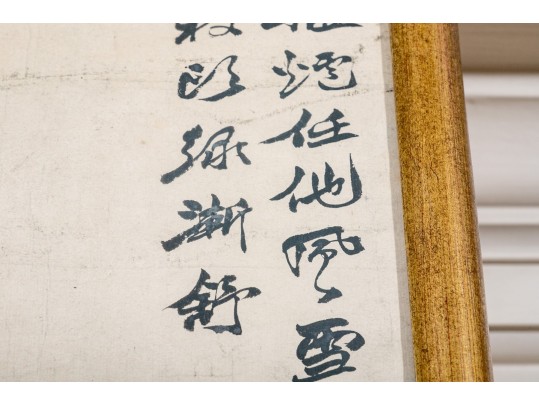 爐任他風雪
頭綠漸舒